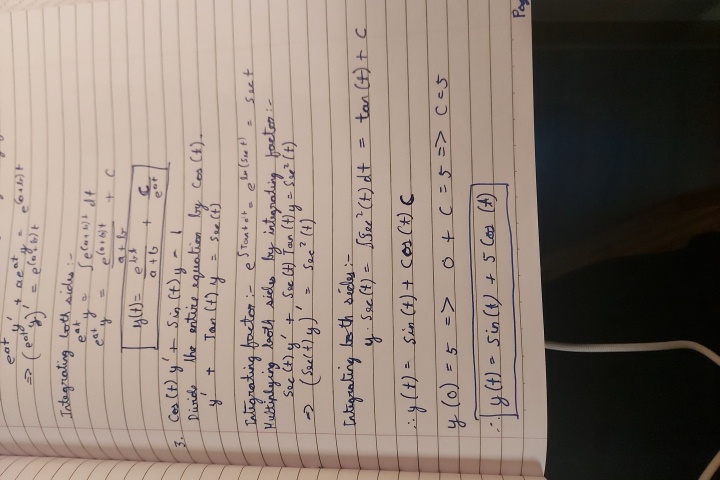 e^{at} y' + ae^{at} y = e^{(a+b)t}
=> (e^{at} y)' = e^{(a+b)t}
Integrating both sides:-
e^{at} y = ∫e^{(a+b)t} dt
e^{at} y = e^{(a+b)t}/(a+b) + C
y(t) = e^{bt}/(a+b) + C/e^{at}
3. Cos(t) y' + Sin(t) y = 1
Divide the entire equation by Cos(t).
y' + Tan(t) y = Sec(t)
Integrating factor:- e^{∫Tan t dt} = e^{ln(Sec t)} = Sec t
Multiplying both sides by integrating factor:-
Sec(t) y' + Sec(t) Tan(t) y = Sec²(t)
=> (Sec(t) y)' = Sec²(t)
Integrating both sides:-
y · Sec(t) = ∫Sec²(t) dt = tan(t) + C
∴ y(t) = Sin(t) + Cos(t) C
y(0) = 5 => 0 + C = 5 => C = 5
∴ y(t) = Sin(t) + 5 Cos(t)